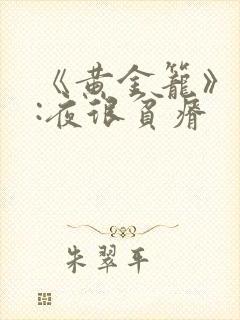 《黄金籠》
:夜很貧瘠
朱翠平